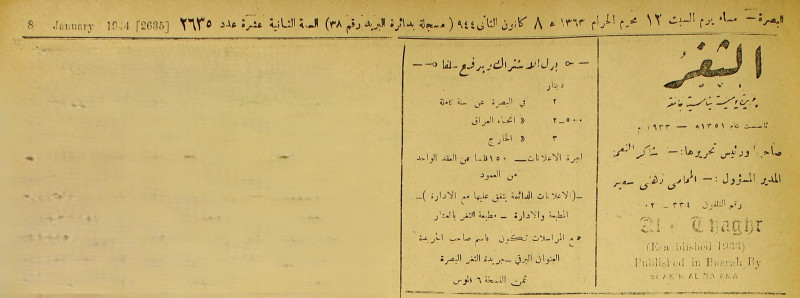 البصرة — مساء يوم السبت ١٢ محرم الحرام ١٣٦٣ ه ٨ كانون الثاني ٩٤٤ ( مسجلة بدائرة البريد رقم ٣٨ ) السنة الثانية عشرة عدد ٢٦٣٥ [2635] 1944 January 8
الثغر
يومية سياسية جامعة
تأسست عام ١٣٥١ه — ١٩٣٣ م
صاحبها ورئيس تحريرها : — شاكر النعمة
المدير المسؤول : — المحامي زهني سفير
رقم التلفون ٣٣٤ — ٠٢
Al - Thaghr
(Established 1933)
Published in Basrah By
SHAKIR AL NAAMA
بدل الاشتراك ويدفع سلفا
دينار
٢ في البصرة عن سنة كاملة
٥٠٠–٢ « انحاء العراق
٣ « الخارج
اجرة الاعلانات — ١٥٠ فلسا عن العقد الواحد
من العمود
–( الاعلانات الدائمة يتفق عليها مع الادارة )–
المطبعة والادارة – مطبعة الثغر بالعشار
جميع المراسلات تكون باسم صاحب الجريدة
العنوان البرقي – جريدة الثغر البصرة
ثمن النسخة ٦ فلوس